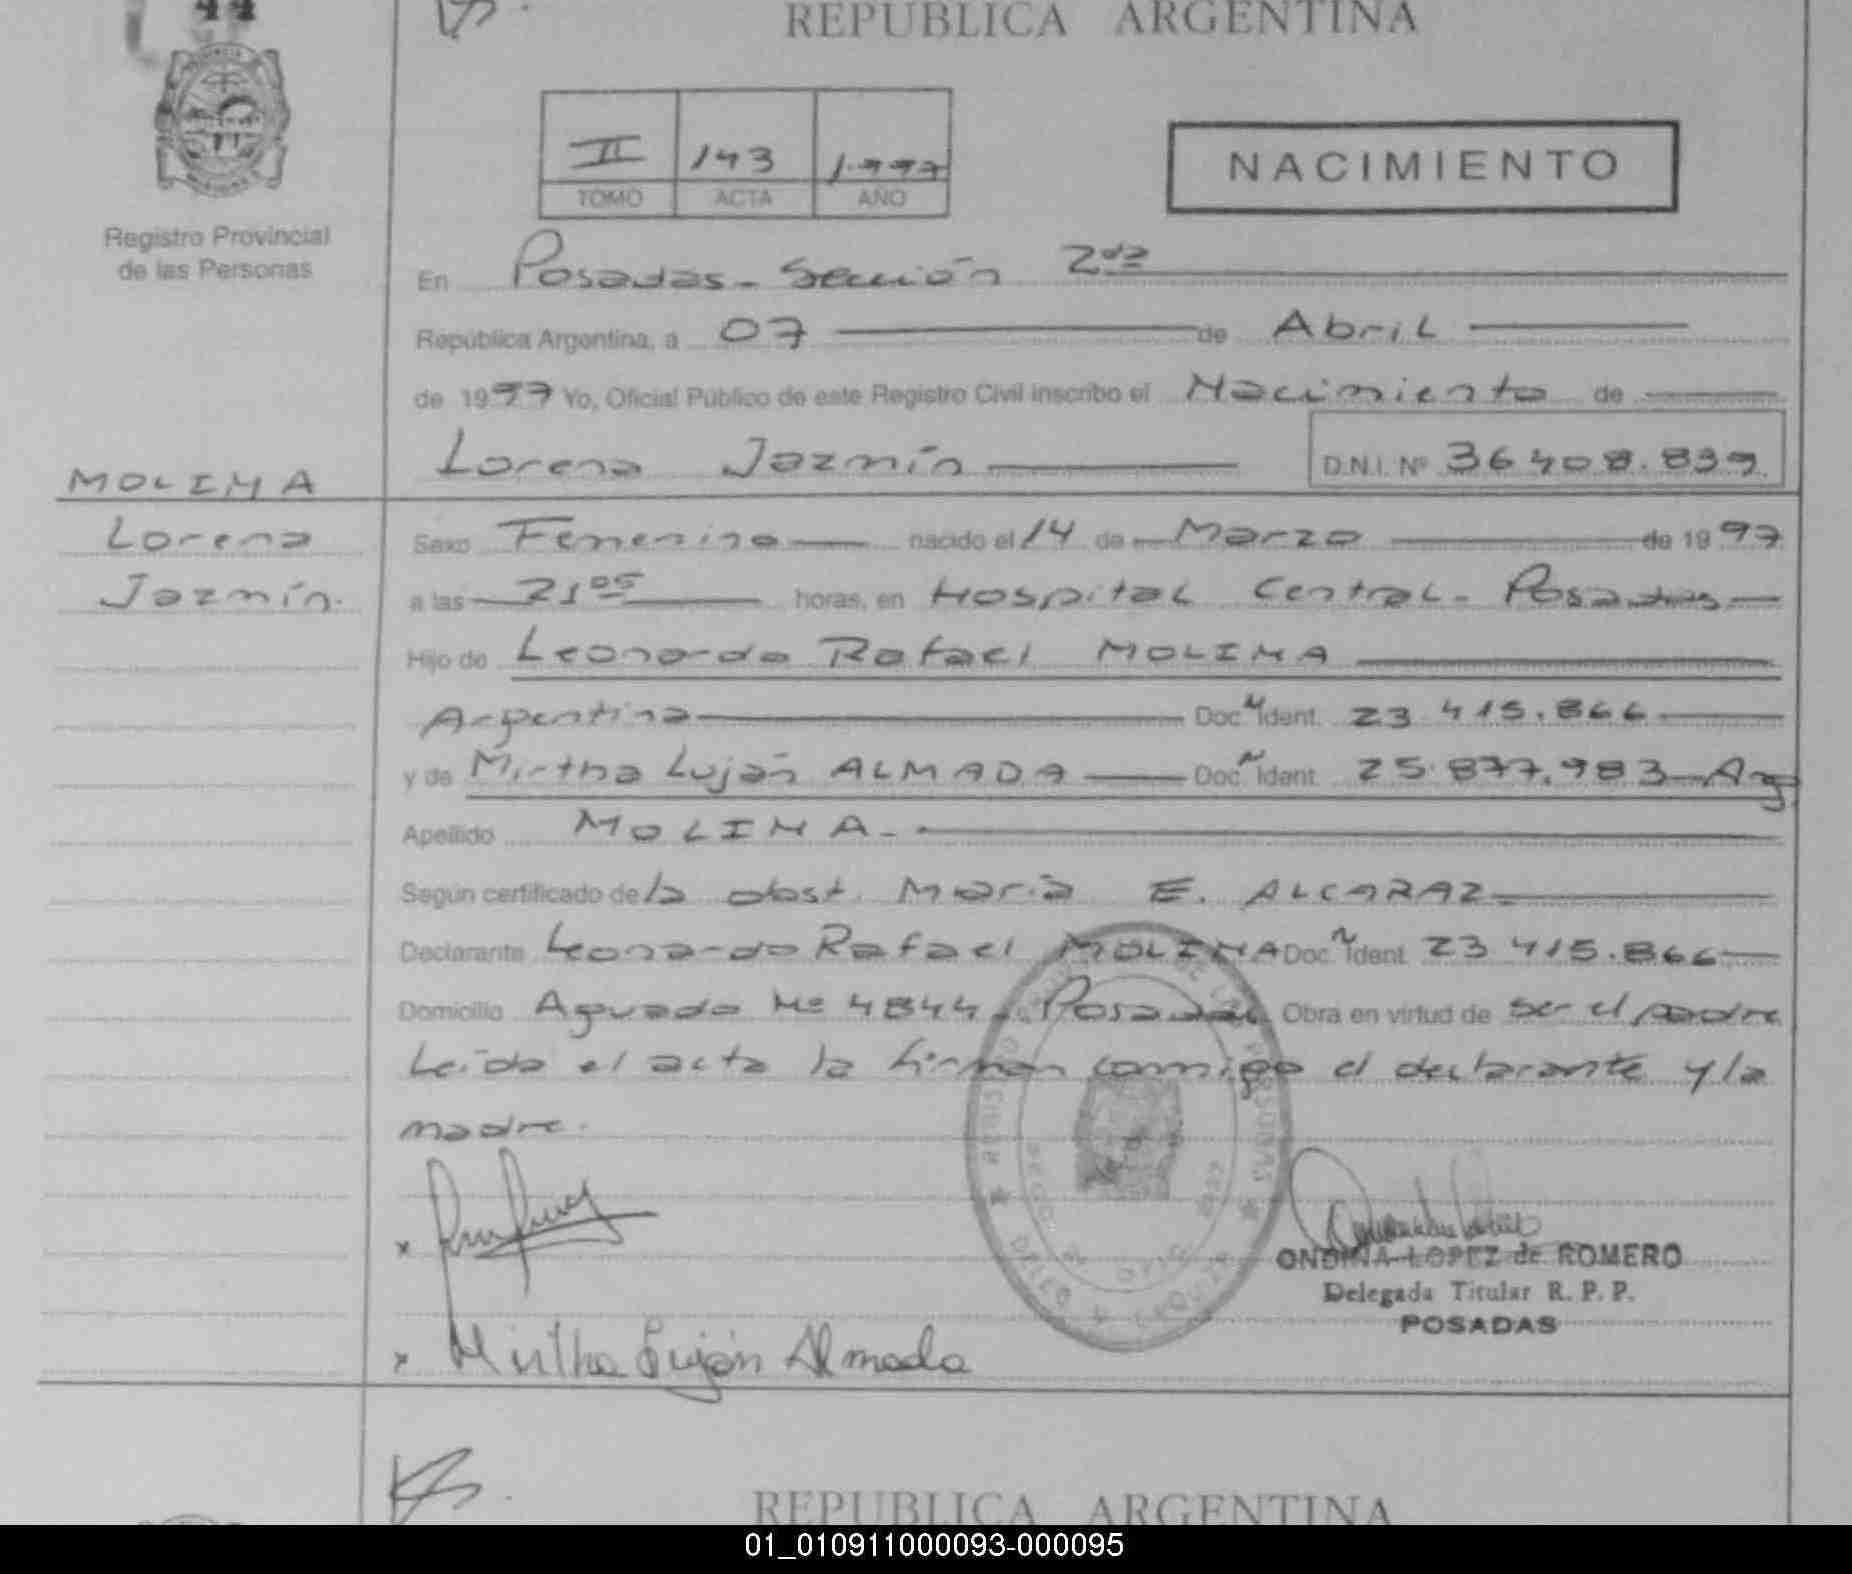 44
REPUBLICA ARGENTINA
II 143 1.997
TOMO ACTA AÑO
NACIMIENTO
Registro Provincial
de las Personas
En Posadas - Sección 2da
República Argentina, a 07 de Abril
de 1997 Yo, Oficial Público de este Registro Civil inscribo el Nacimiento de
Lorena Jazmín D.N.I. Nº 36 408.839
MOLINA
Lorena
Jazmín.
Sexo Femenino nacido el 14 de Marzo de 1997
a las 21 05 horas, en Hospital Central - Posadas
Hijo de Leonardo Rafael MOLINA
Argentina Doc. Ident. 23 415.866
y de Mirtha Luján ALMADA Doc. Ident. 25.877.983 - Arg
Apellido MOLINA.-
Según certificado de la obst. María E. ALCARAZ
Declarante Leonardo Rafael MOLINA Doc. Ident. 23 415.866
Domicilio Aguado Nº 4844 - Posadas Obra en virtud de ser el padre
Leída el acta la firman conmigo el declarante y la
madre.
x
ONDINA LOPEZ de ROMERO
Delegada Titular R. P. P.
POSADAS
x Mirtha Luján Almada
REPUBLICA ARGENTINA
01_010911000093-000095